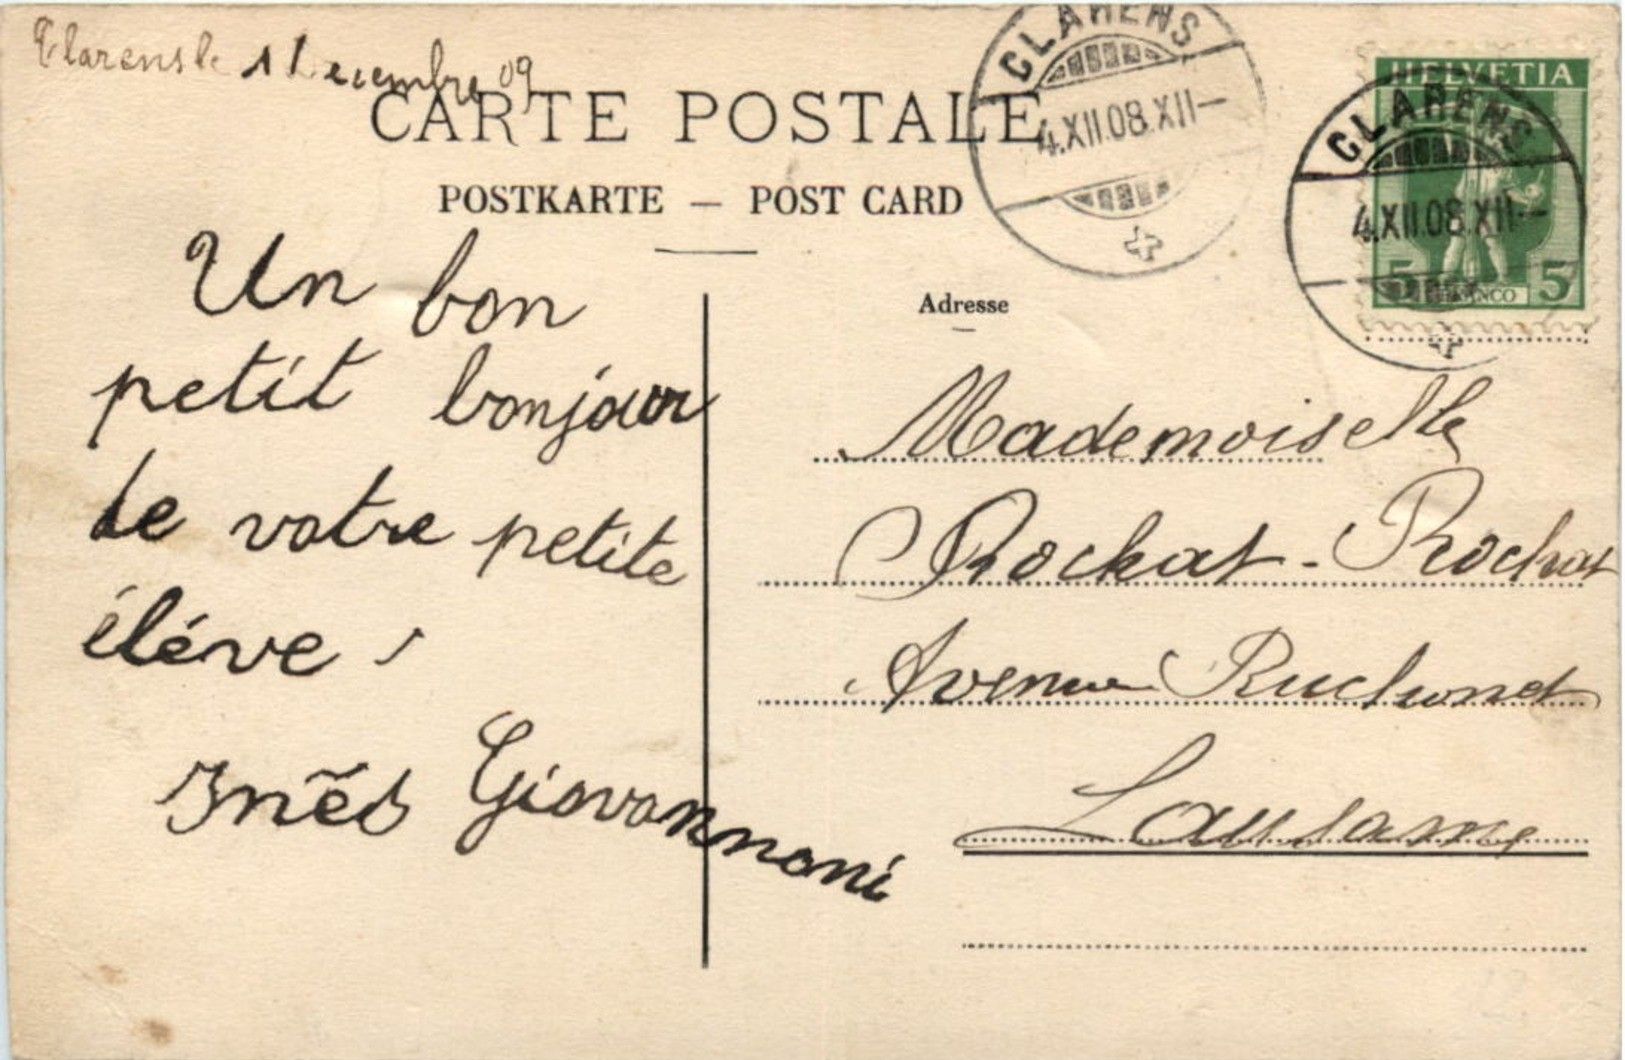 Clarens le 1 Decembre 09
CARTE POSTALE
POSTKARTE — POST CARD
CLARENS
4.XII.08.XII—
HELVETIA
CLARENS
4.XII.08.XII—
5 FRANCO 5
Adresse
Un bon
petit bonjour
de votre petite
éléve
Inĕs Giovannoni
Mademoiselle
Rochat-Rochat
Avenue Ruchonet
Lausanne